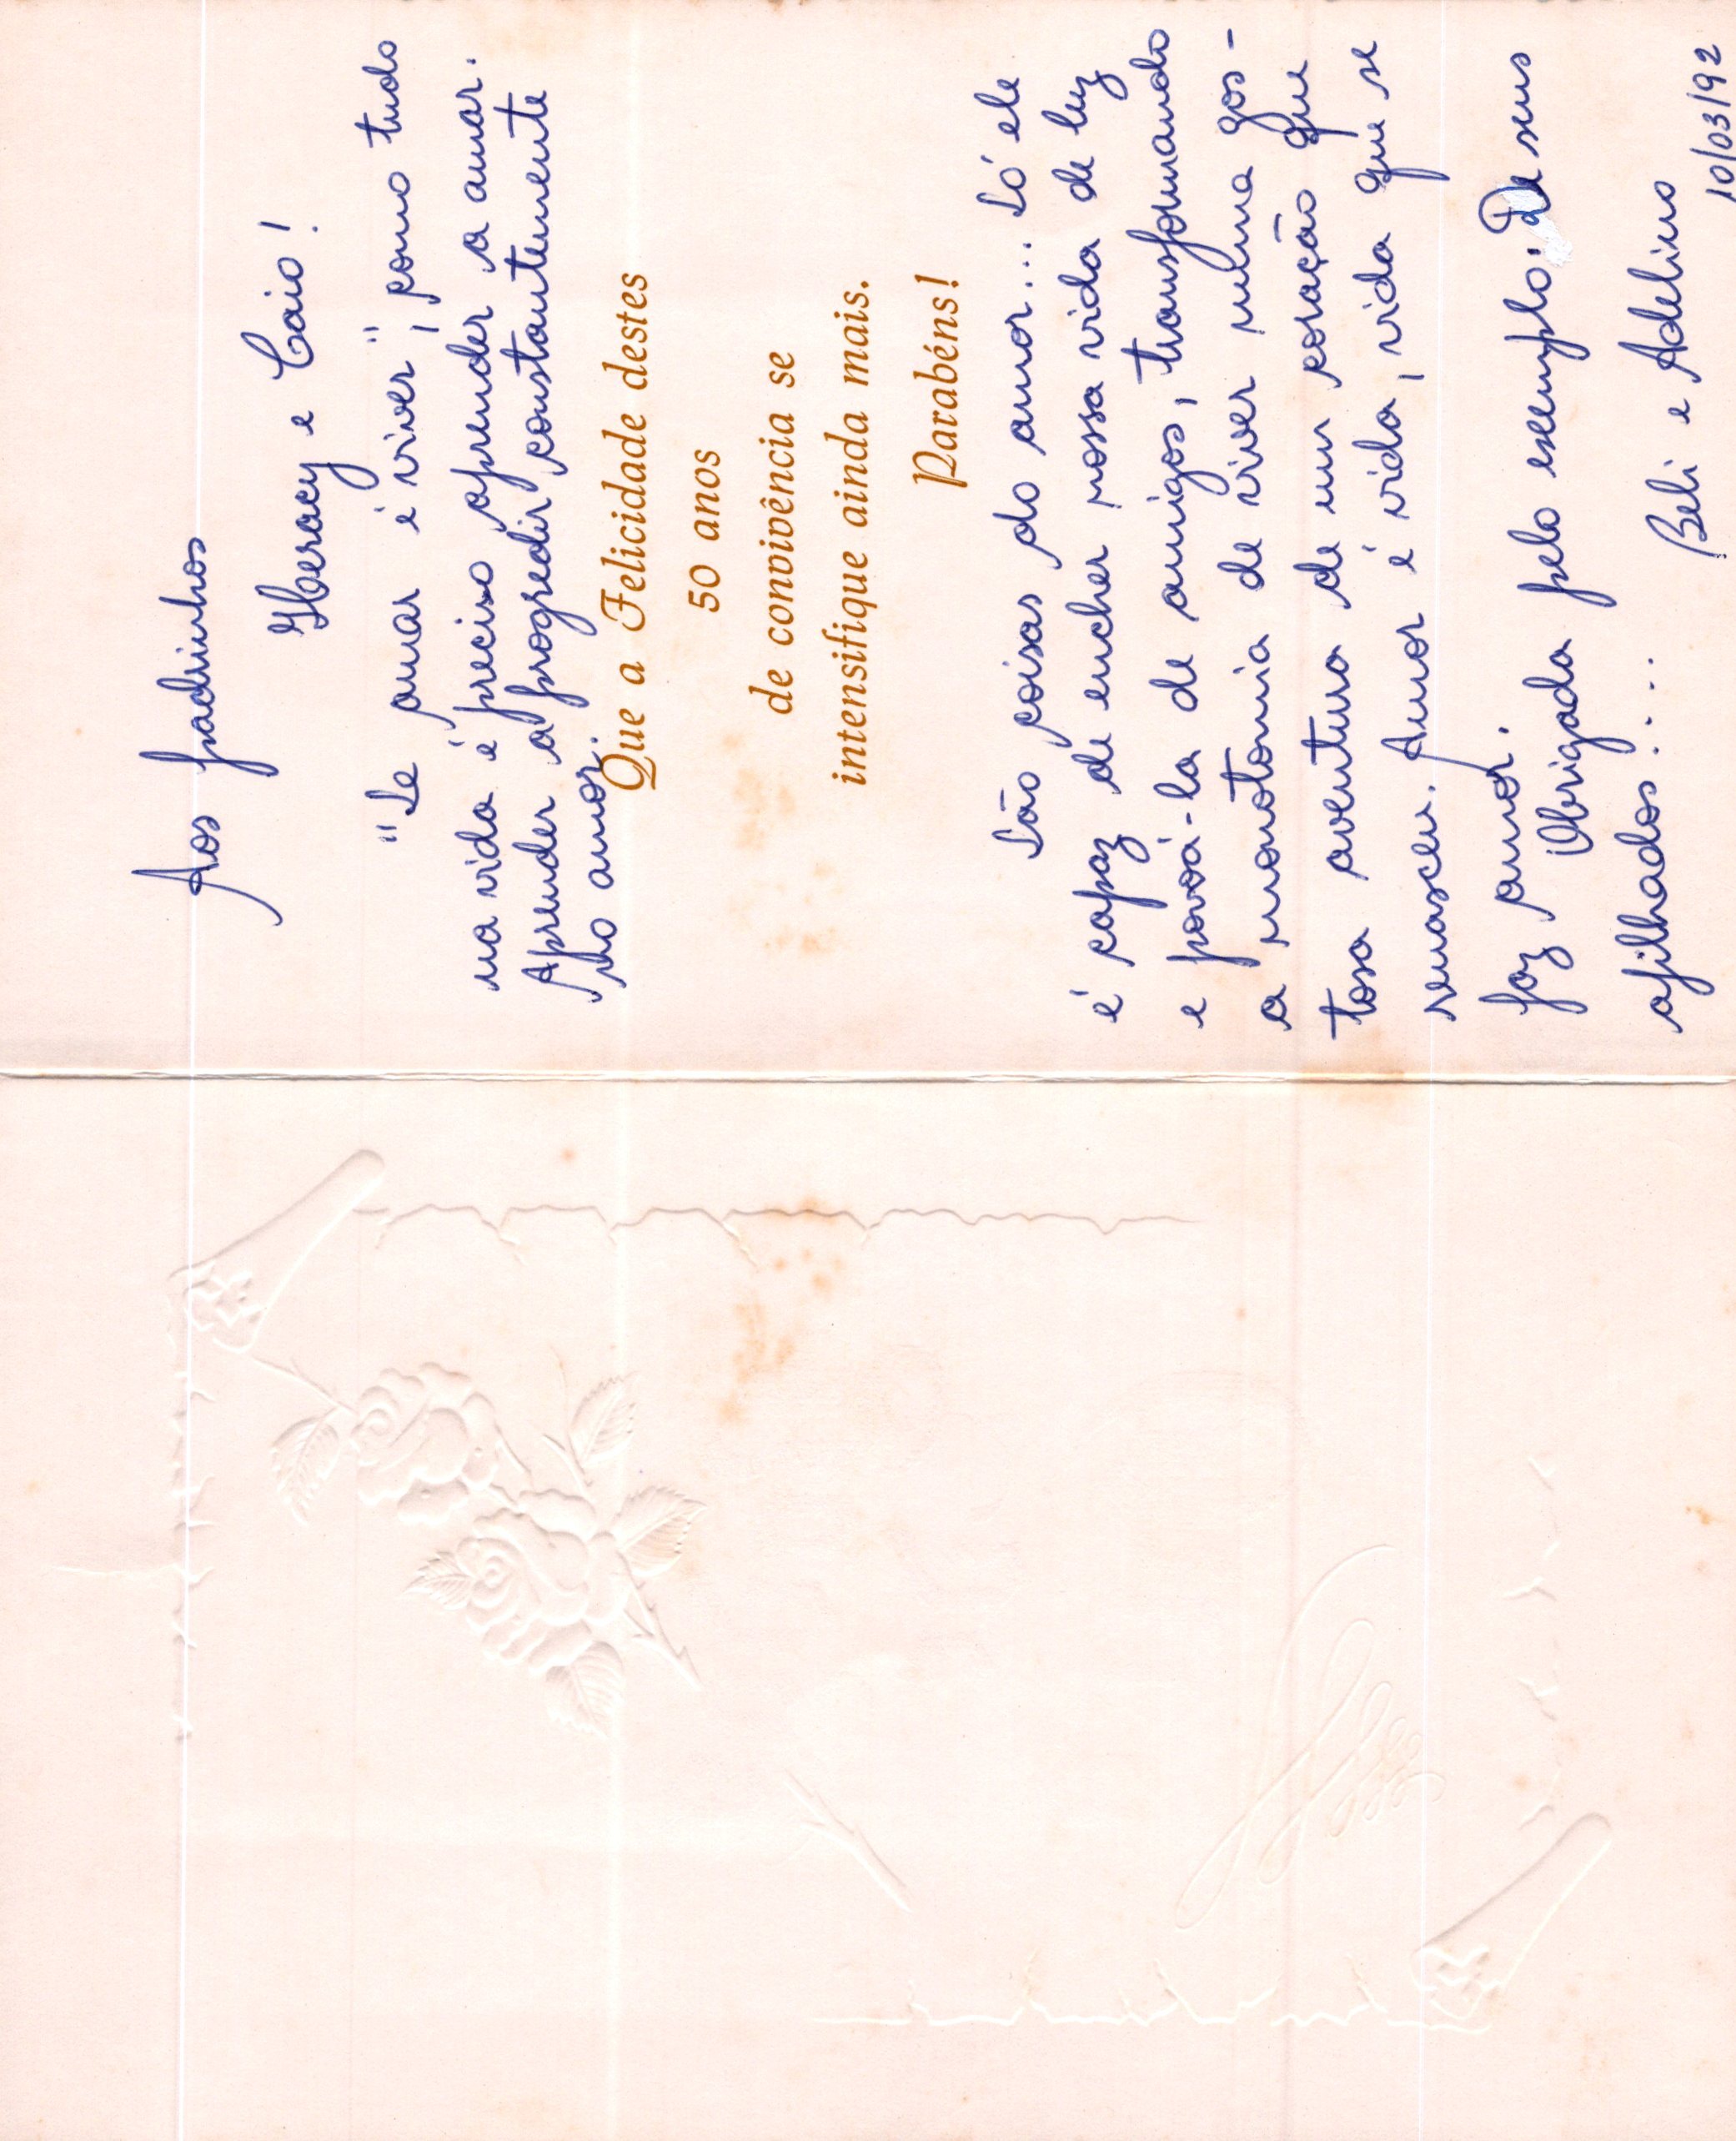 Aos padrinhos
Iberacy e Caio!
"Se amar é viver", como tudo
na vida é preciso aprender a amar.
Aprender a progredir constantemente
no amor.
Que a Felicidade destes
50 anos
de convivência se
intensifique ainda mais.
Parabéns!
São coisas do amor... Só ele
é capaz de encher nossa vida de luz
e povoá-la de amigos, transformando
a monotonia de viver numa gos-
tosa aventura de um coração que
renasceu. Amor é vida, vida que se
faz amor.
Obrigada pelo exemplo. De seus
afilhados....
Beli e Adelino
10/03/92